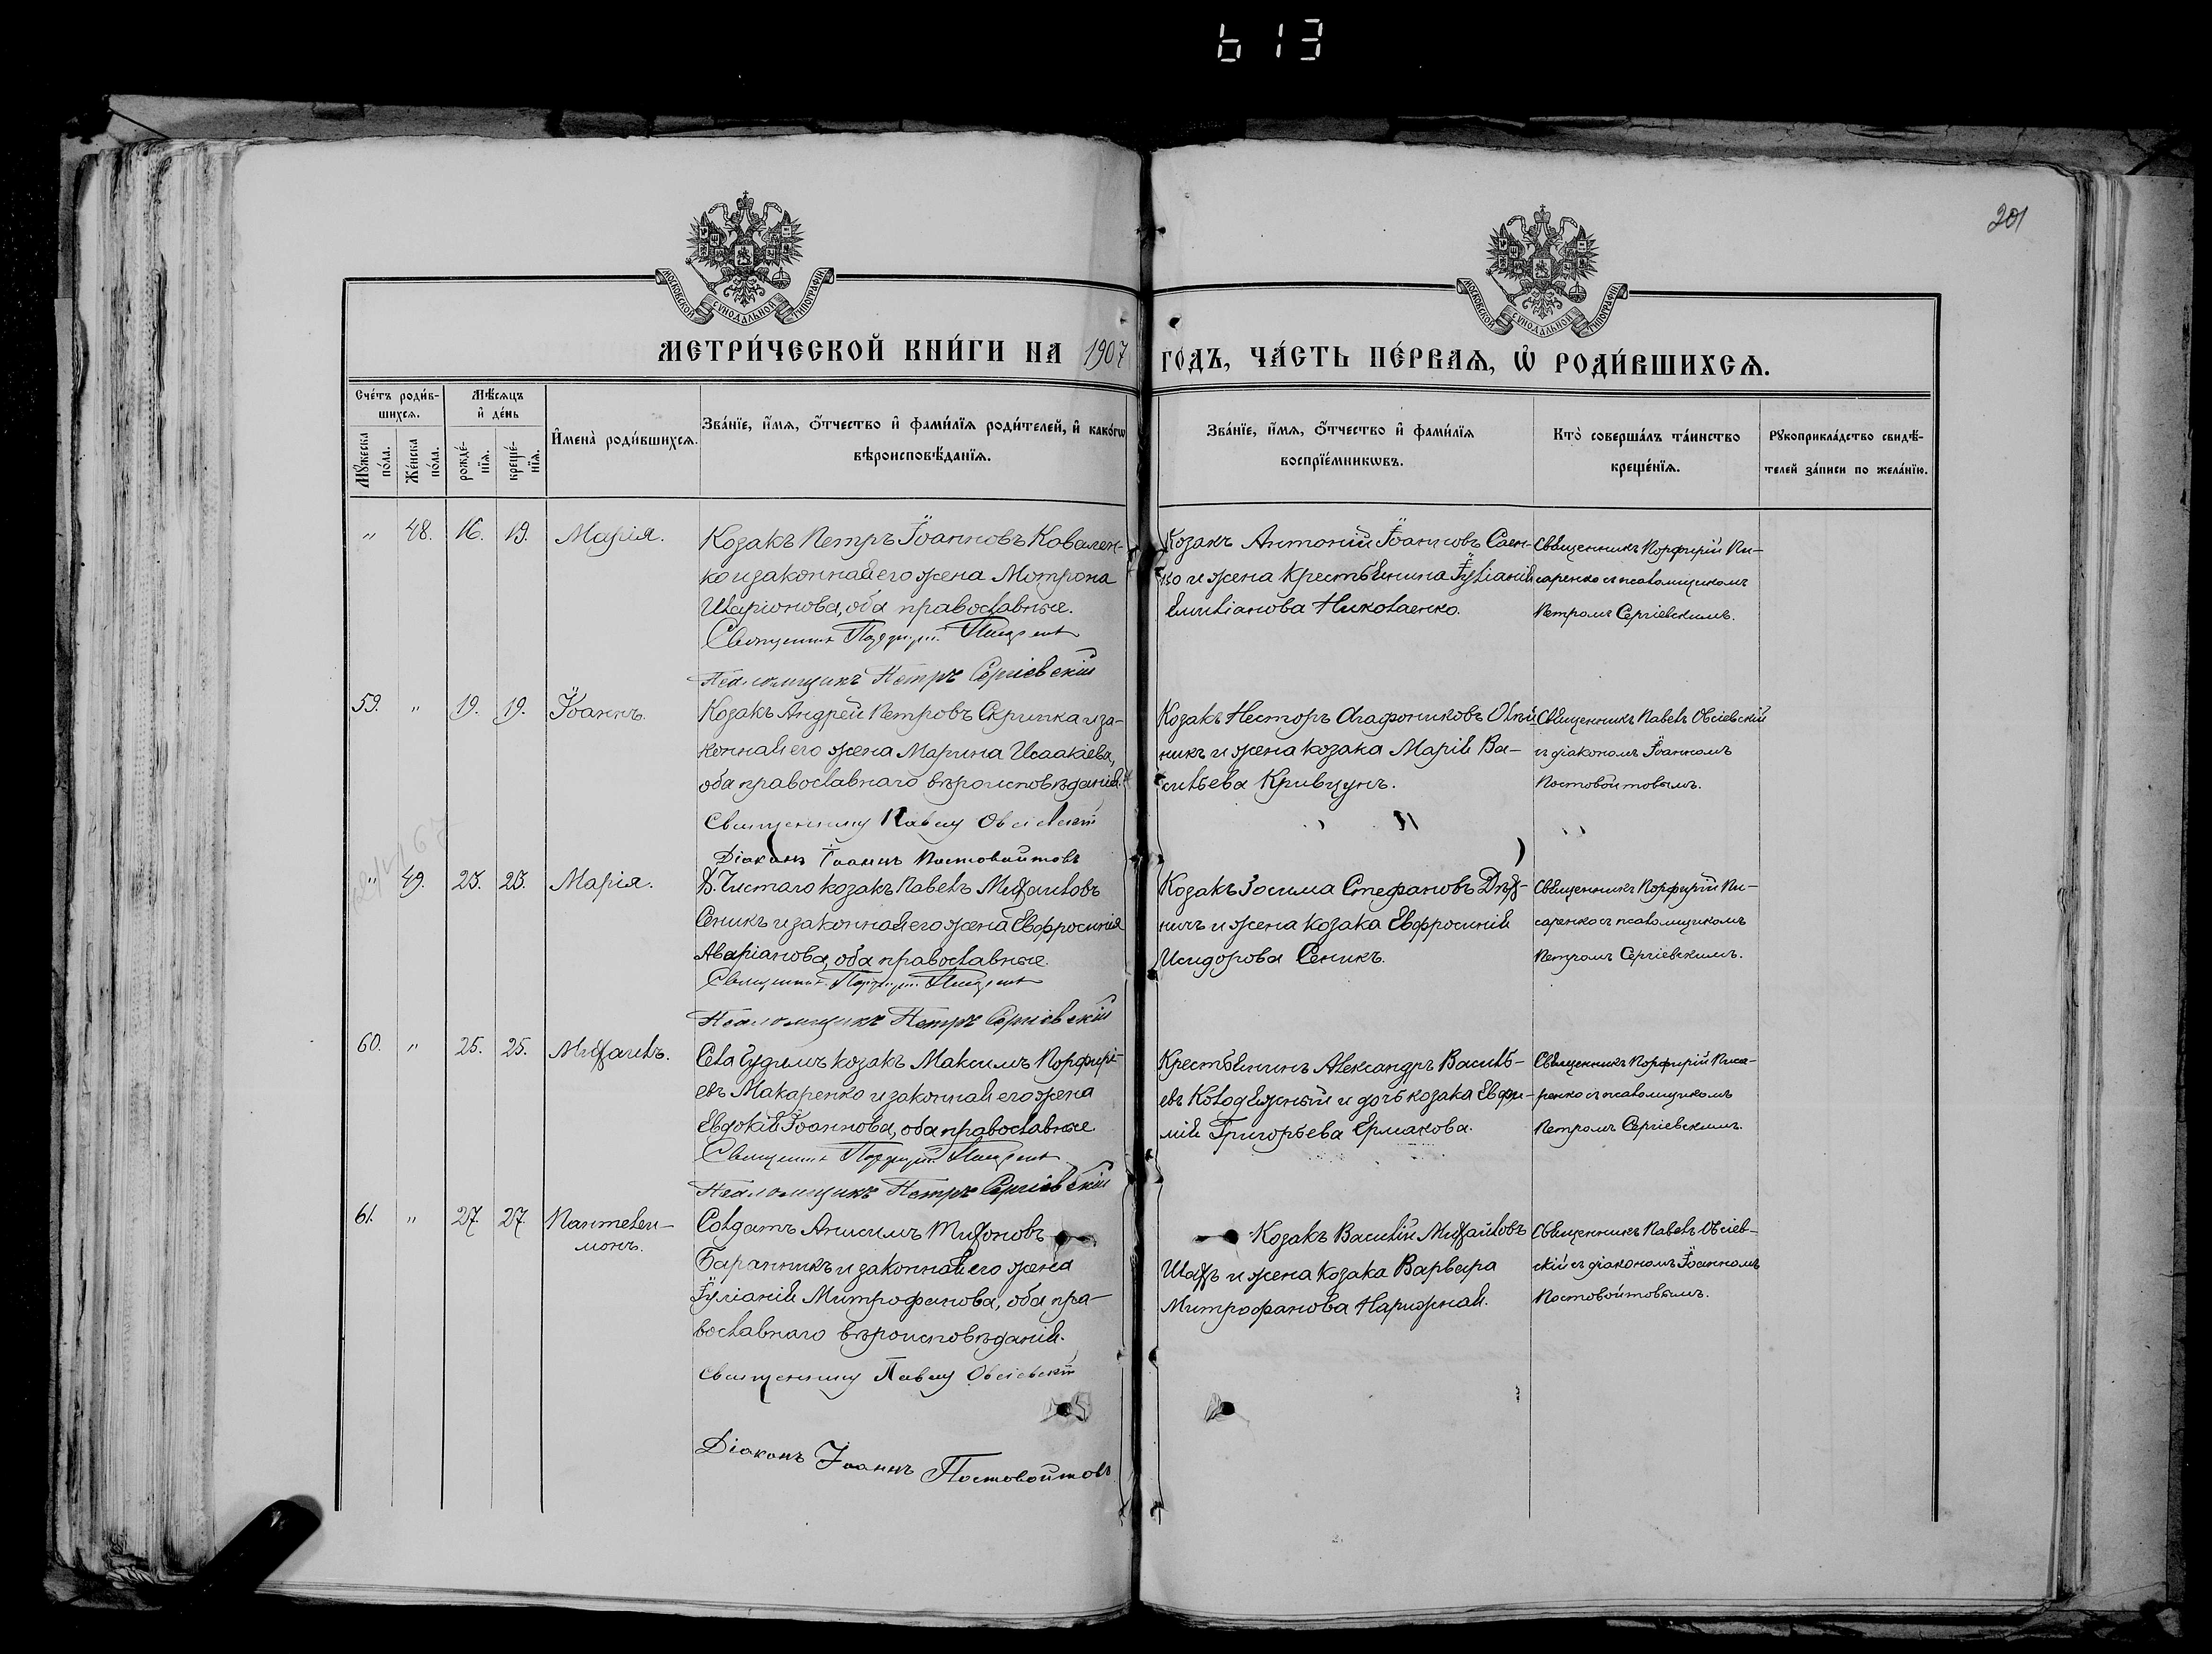 613
201
МОСКОВСКОЙ СѴНОДАЛЬНОЙ ТИПОГРАФІИ
МОСКОВСКОЙ СѴНОДАЛЬНОЙ ТИПОГРАФІИ
МЕТРИ́ЧЕСКОЙ КНИ́ГИ НА 1907 ГО́ДЪ, ЧА́СТЬ ПЕ́РВАѦ, Ѡ҆ РОДИ́ВШИХСѦ.
Сче́тъ роди́в-
шихсѧ.
Мꙋ́жеска
по́ла.
Же́нска
по́ла.
Мѣ́сѧцъ
и҆ де́нь
рожде́-
нїѧ.
креще́-
нїѧ.
И҆мена̀ роди́вшихсѧ.
Зва́нїе, и҆́мѧ, ѻ҆́тчество и҆ фами́лїѧ роди́телей, и҆ како́гѡ
вѣроисповѣ́данїѧ.
Зва́нїе, и҆́мѧ, ѻ҆́тчество и҆ фами́лїѧ
воспрїе́мникѡвъ.
Кто̀ соверша́лъ та́инство
креще́нїѧ.
Рꙋкоприкла́дство свидѣ́-
телей за́писи по жела́нїю.
" 48. 16. 19. Марія.
Козакъ Петръ Іоанновъ Ковален-
ко и законная его жена Мотрона
Иларіонова, оба православные.
Священникъ Порфирій Писаренко
Псаломщикъ Петръ Сергіевскій
Козакъ Антоній Іоанновъ Саен-
ко и жена крестьянина Іуліанія
Емиліанова Николаенко.
Священникъ Порфирій Пи-
саренко съ псаломщикомъ
Петромъ Сергіевскимъ.
59. " 19. 19. Іоаннъ.
Козакъ Андрей Петровъ Скрипка и за-
конная его жена Марина Исаакіева,
оба православнаго вѣроисповѣданія.
Священникъ Павелъ Овсіевскій
Діаконъ Іоаннъ Постовойтовъ
Козакъ Несторъ Агафониковъ Олѣй-
никъ и жена козака Марія Ва-
сильева Кривцунъ.
Священникъ Павелъ Овсіевскій
съ діакономъ Іоанномъ
Постовойтовымъ.
" 49. 23. 23. Марія.
Д. Чистаго козакъ Павелъ Михаиловъ
Сеникъ и законная его жена Евфросинія
Аваріанова, оба православные.
Священникъ Порфирій Писаренко
Псаломщикъ Петръ Сергіевскій
Козакъ Зосима Стефановъ Дѣх-
ничъ и жена козака Евфросинія
Исидорова Сеникъ.
Священникъ Порфирій Пи-
саренко съ псаломщикомъ
Петромъ Сергіевскимъ.
60. " 25. 25. Михаилъ.
Села козакъ Максимъ Порфирі-
евъ Макаренко и законная его жена
Евдокія Іоаннова, оба православные
Священникъ Порфирій Писаренко
Псаломщикъ Петръ Сергіевскій
Крестьянинъ Александръ Василь-
евъ Колодяжный и дочь козака Евфи-
мія Григорьева Ермакова.
Священникъ Порфирій Писа-
ренко съ псаломщикомъ
Петромъ Сергіевскимъ.
61. " 27. 27. Пантелеи-
монъ.
Солдатъ Анисимъ Тихоновъ
Баранникъ и законная его жена
Іуліанія Митрофанова, оба пра-
вославнаго вѣроисповѣданія.
Священникъ Павелъ Овсіевскій
Діаконъ Іоаннъ Постовойтовъ
Козакъ Василій Михаиловъ
Шахъ и жена козака Варвара
Митрофанова Нарижная.
Священникъ Павелъ Овсіев-
скій съ діакономъ Іоанномъ
Постовойтовымъ.